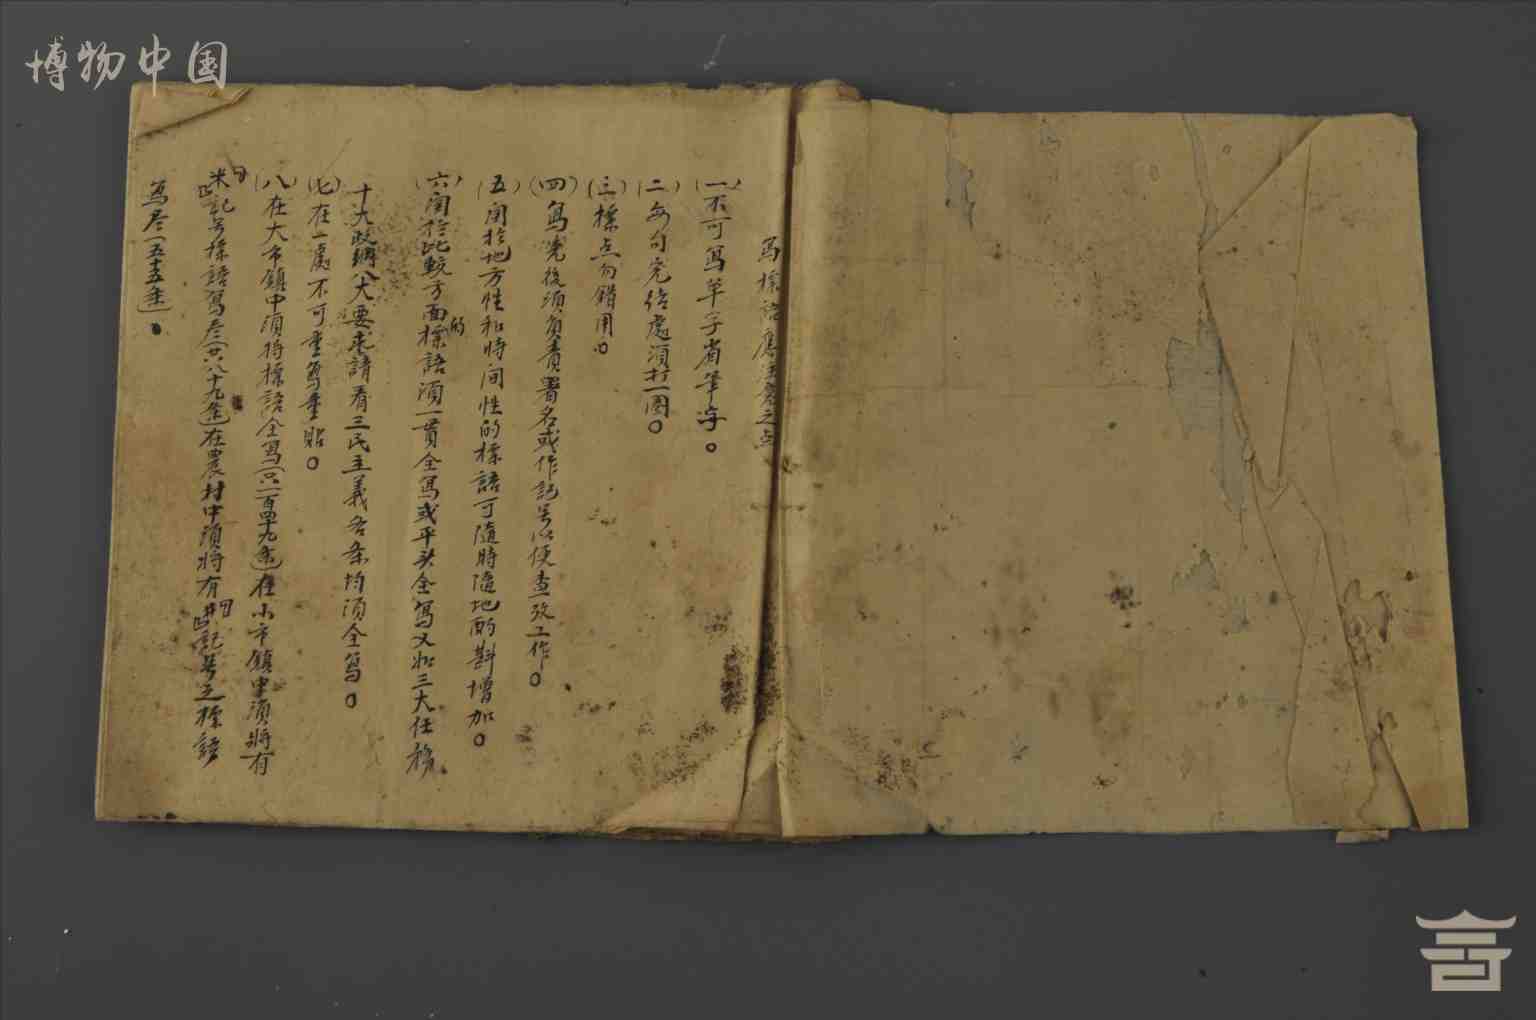 博物中国
写標語應注意之点
(一)不可写草字省筆字。
(二)每句完結處須打一圈。
(三)標点勿錯用。
(四)写完後須負責署名或作記号以便查攷工作。
(五)関於地方性和時间性的標語可隨時隨地酌斟增加。
(六)関於比較方面的標語須一貫全写或平头全写又如三大任務
十大政綱八大要求請看三民主義各条均須全写。
(七)在一處不可重写重貼。
(八)在大市鎮中須将標語全写(只一百四十九条)在小市鎮中須将有
米記号標語写尽(共八十九条)在農村中須將有井記号之標語
写尽(五十五条)。